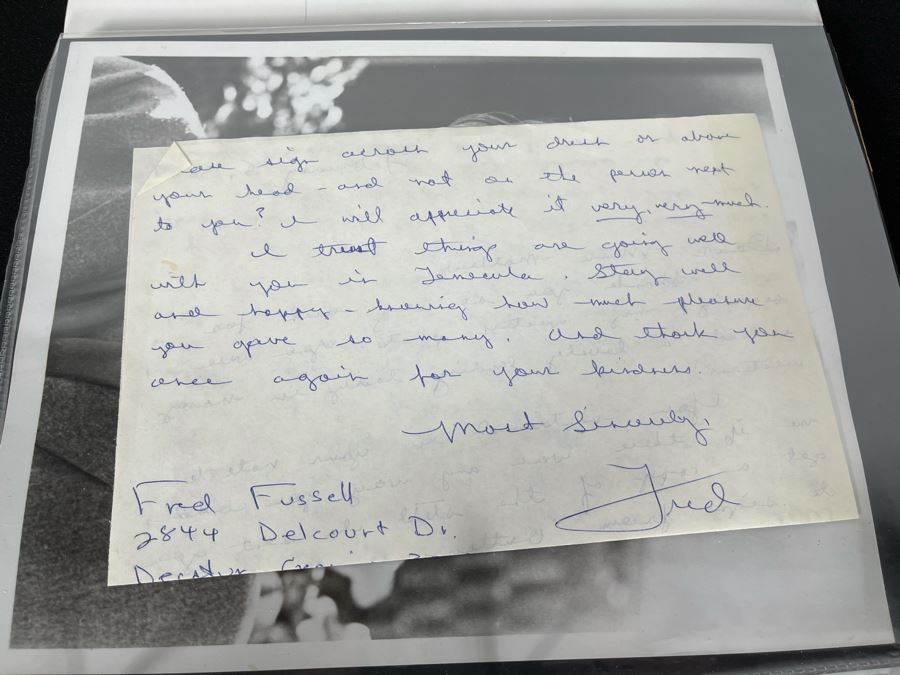 sign across your dress or above
your head - and not on the person next
to you? I will appreciate it very, very much.
I trust things are going well
with you in Temecula. Stay well
and happy - knowing how much pleasure
you gave so many. And thank you
once again for your kindness.
Most Sincerely,
Fred
Fred Fussell
2844 Delcourt Dr.
Decatur